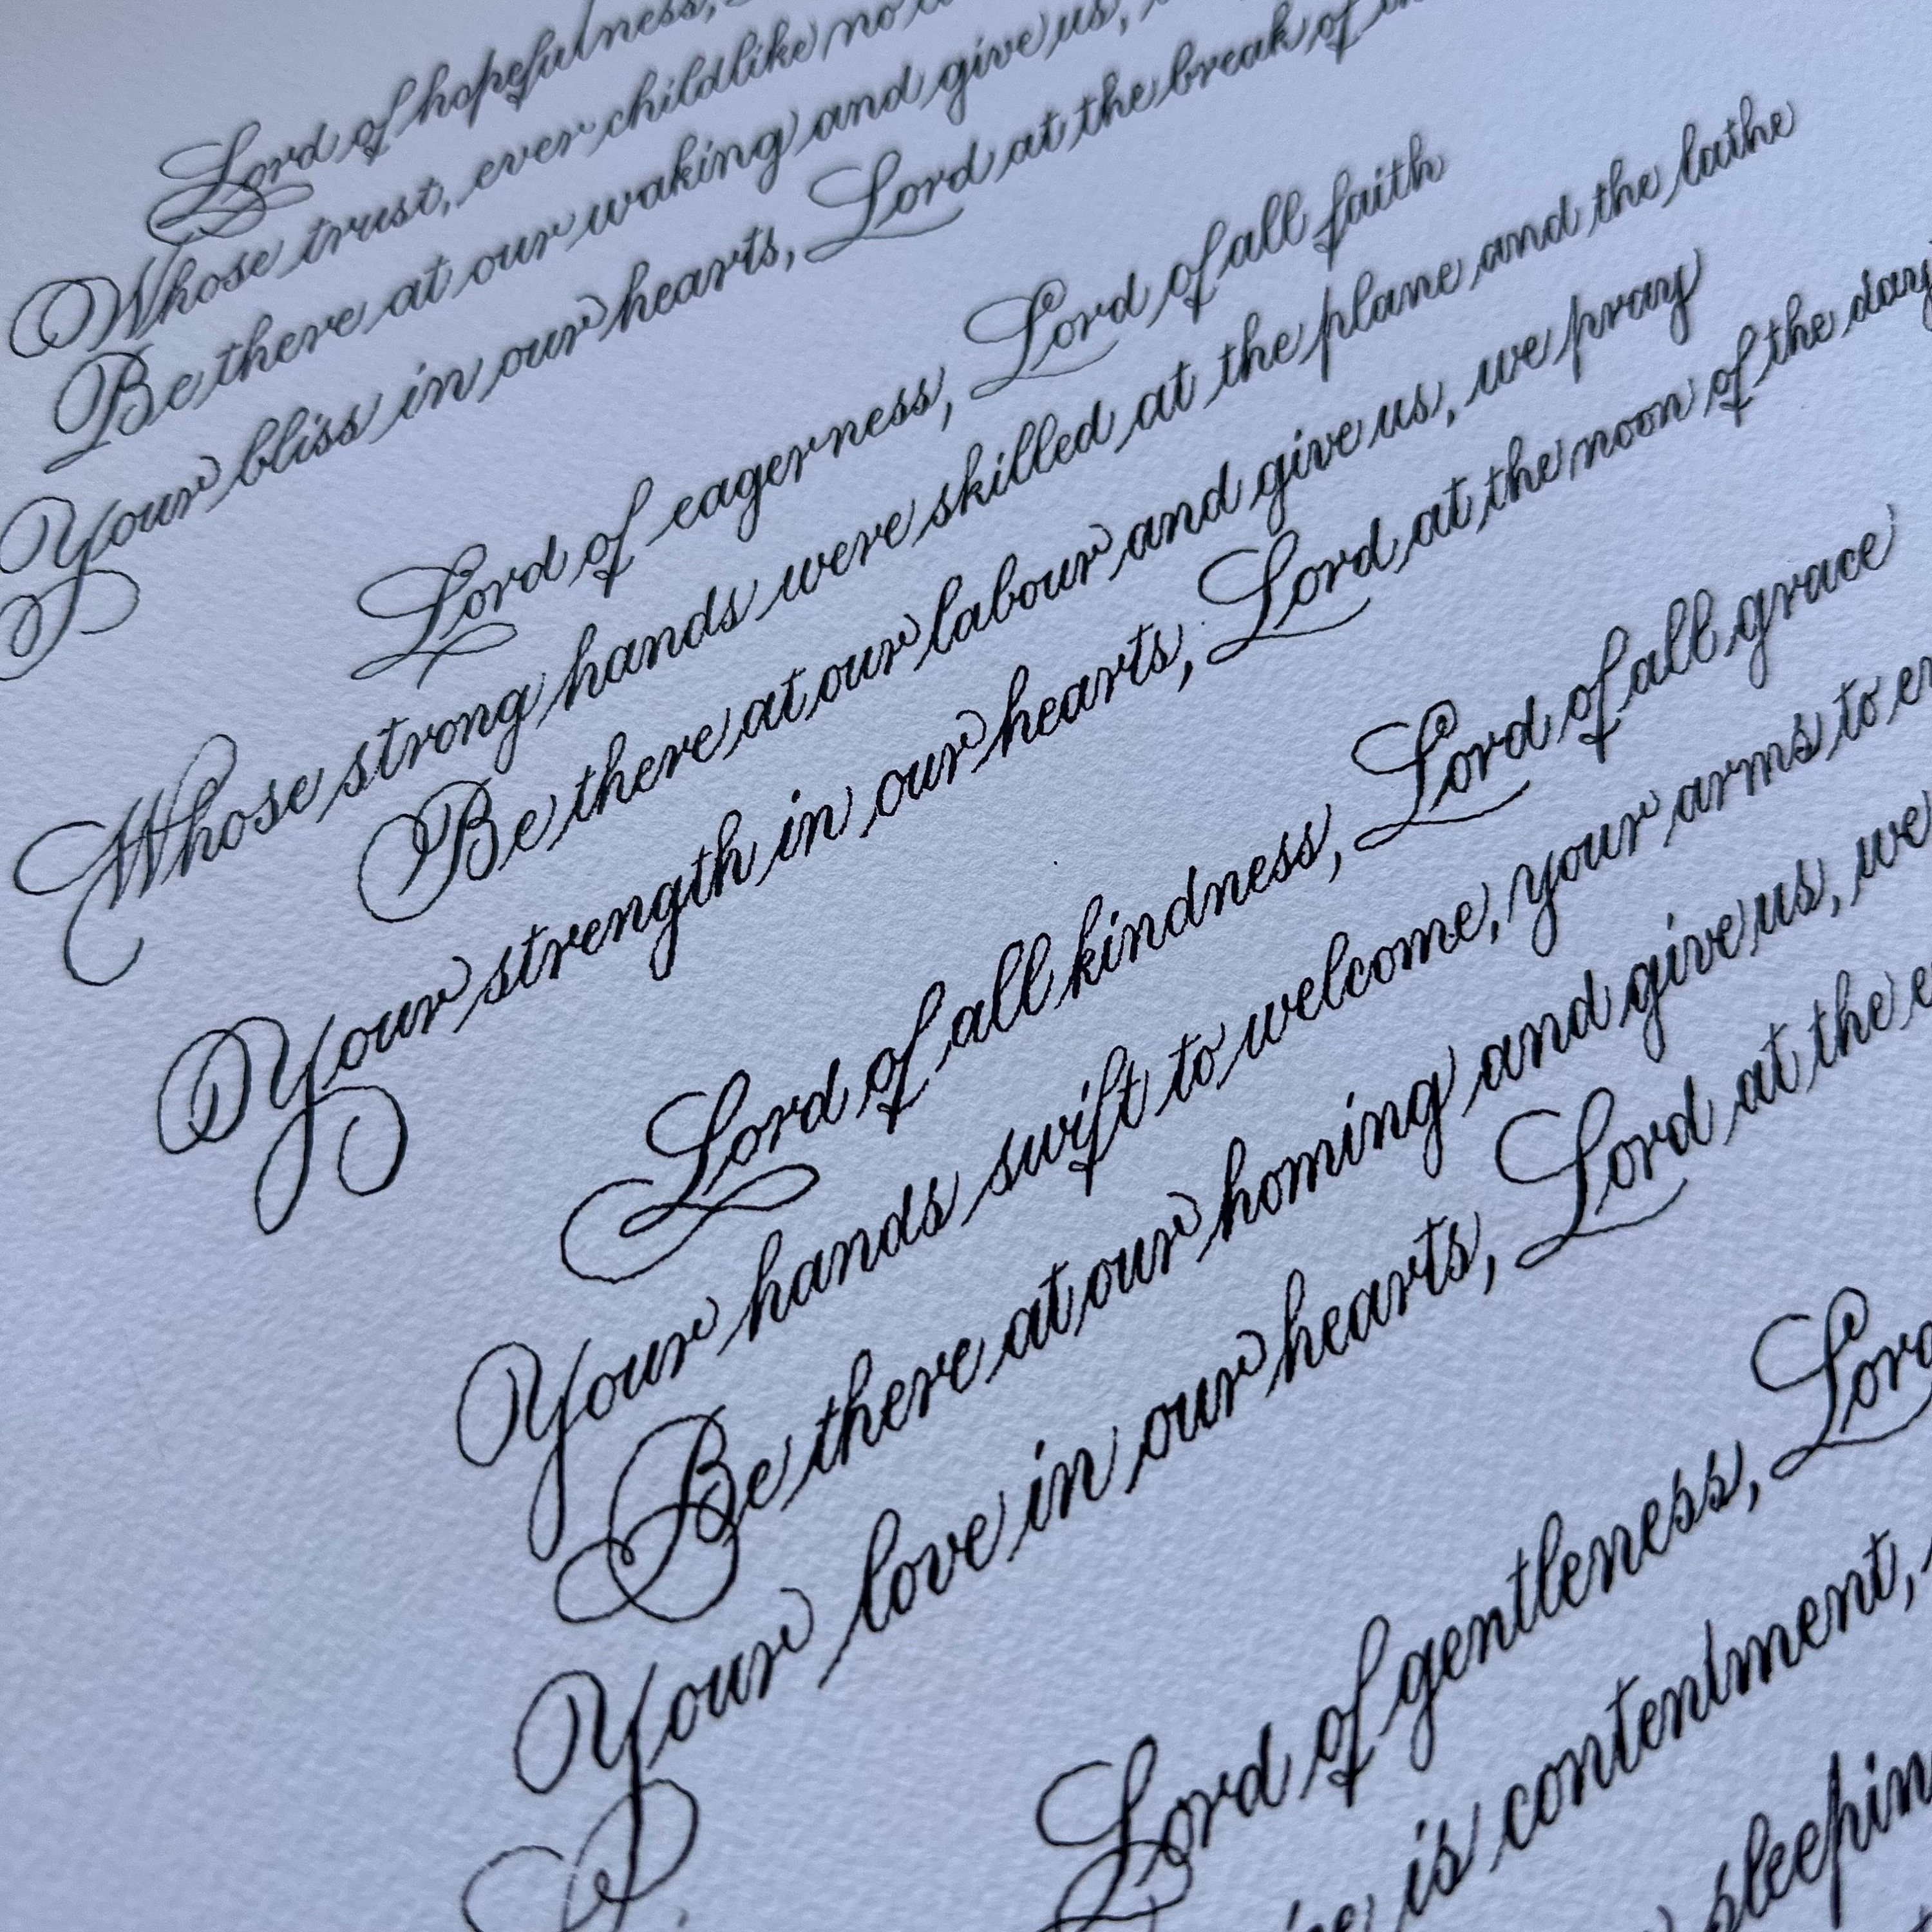 Lord of hopefulness,
Whose trust, ever childlike no
Be there at our waking and give us,
Your bliss in our hearts, Lord at the break of
Lord of eagerness, Lord of all faith
Whose strong hands were skilled at the plane and the lathe
Be there at our labour and give us, we pray
Your strength in our hearts, Lord at the noon of the day
Lord of all kindness, Lord of all grace
Your hands swift to welcome, your arms to
Be there at our homing and give us, we
Your love in our hearts, Lord at the
Lord of gentleness, Lord
is contentment,